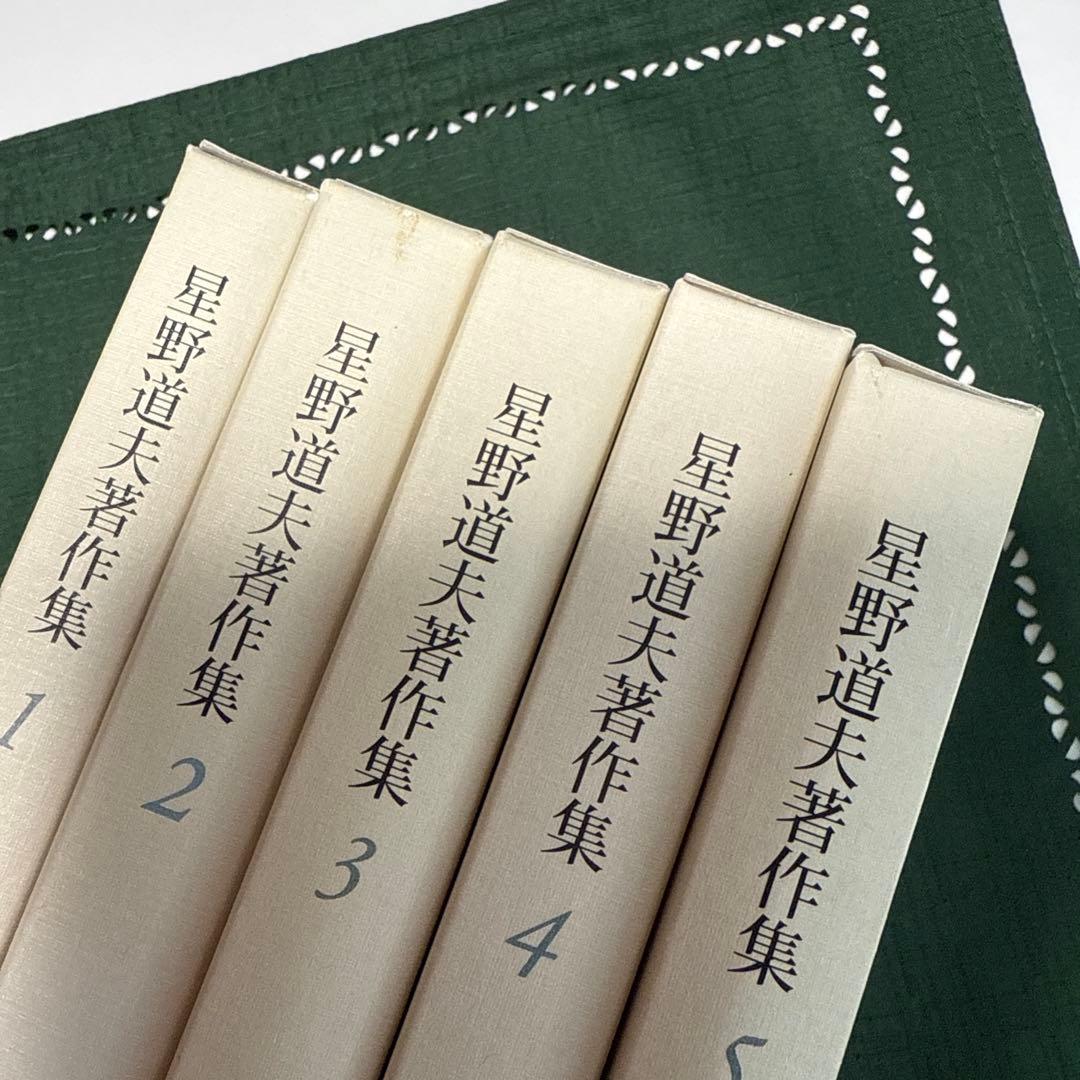 星野道夫著作集 1
星野道夫著作集 2
星野道夫著作集 3
星野道夫著作集 4
星野道夫著作集 5